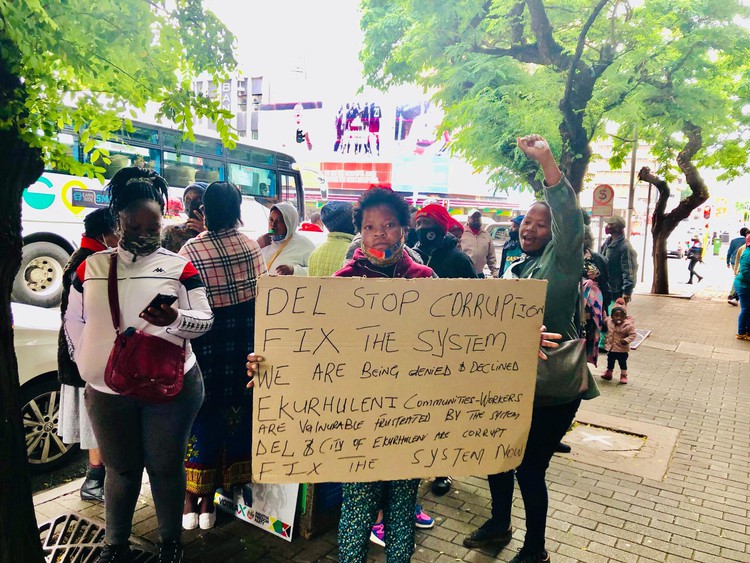 DEL STOP CORRUPTION
FIX THE SYSTEM
WE ARE BEING DENIED & DECLINED
EKURHULENI COMMUNITIES-WORKERS
ARE VALNURABLE FRUSTEATED BY THE SYSTEM
DEL & CITY OF EKURHULENI ARE CORRUPT
FIX THE SYSTEM NOW